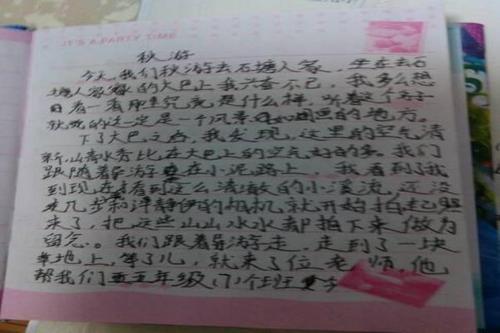 IT'S A PARTY TIME
秋游
今天,我们秋游去石塘人家,坐在去石
塘人家的大巴上我兴奋不已,我多么想
看一看那里究竟是什么样,听着这个名字
就觉的这一定是一个风景如画的地方。
下了大巴之后,我发现,这里的空气清
新,山清水秀比在大巴上的空气好的多。我们
跟随着导游走在小泥路上,我看到了我
到现在看到这么清澈的小溪流,还没
走几步和洋静伊的相机就开始拍起照
来了,把这些山山水水都拍下来做为
留念。我们跟着导游走,走到了一块
草地上,等了儿,就来了位老师,他
帮我们五年级(7)个班